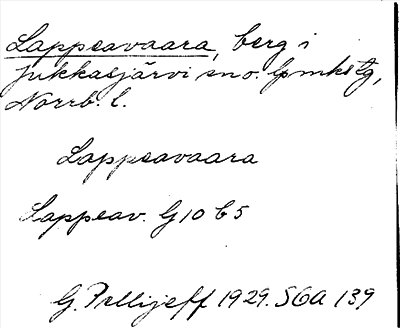 Lappeavaara, berg i
Jukkasjärvi sno. lpmks tg,
Norrb. l.
Lappeavaara
Lappeav. G10 b5
G. Pellijeff 1929. SOA 139